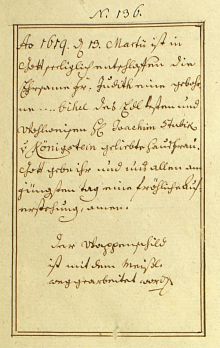 N. 136.
Ao 1619. d 13. Martii ist in
Gott seeliglich entschlaffen die
Ehrsame fr. Judith eine gebohr-
ne .... bihel des Edl Vesten und
Joachim Stubik
v. Königstein geliebte haußfrau.
Gott geb ihr und uns allen am
jüngsten tag eine fröhliche auf-
erstehung, amen.
Der Wappenschild
ist mit dem Meißl
weggearbeitet